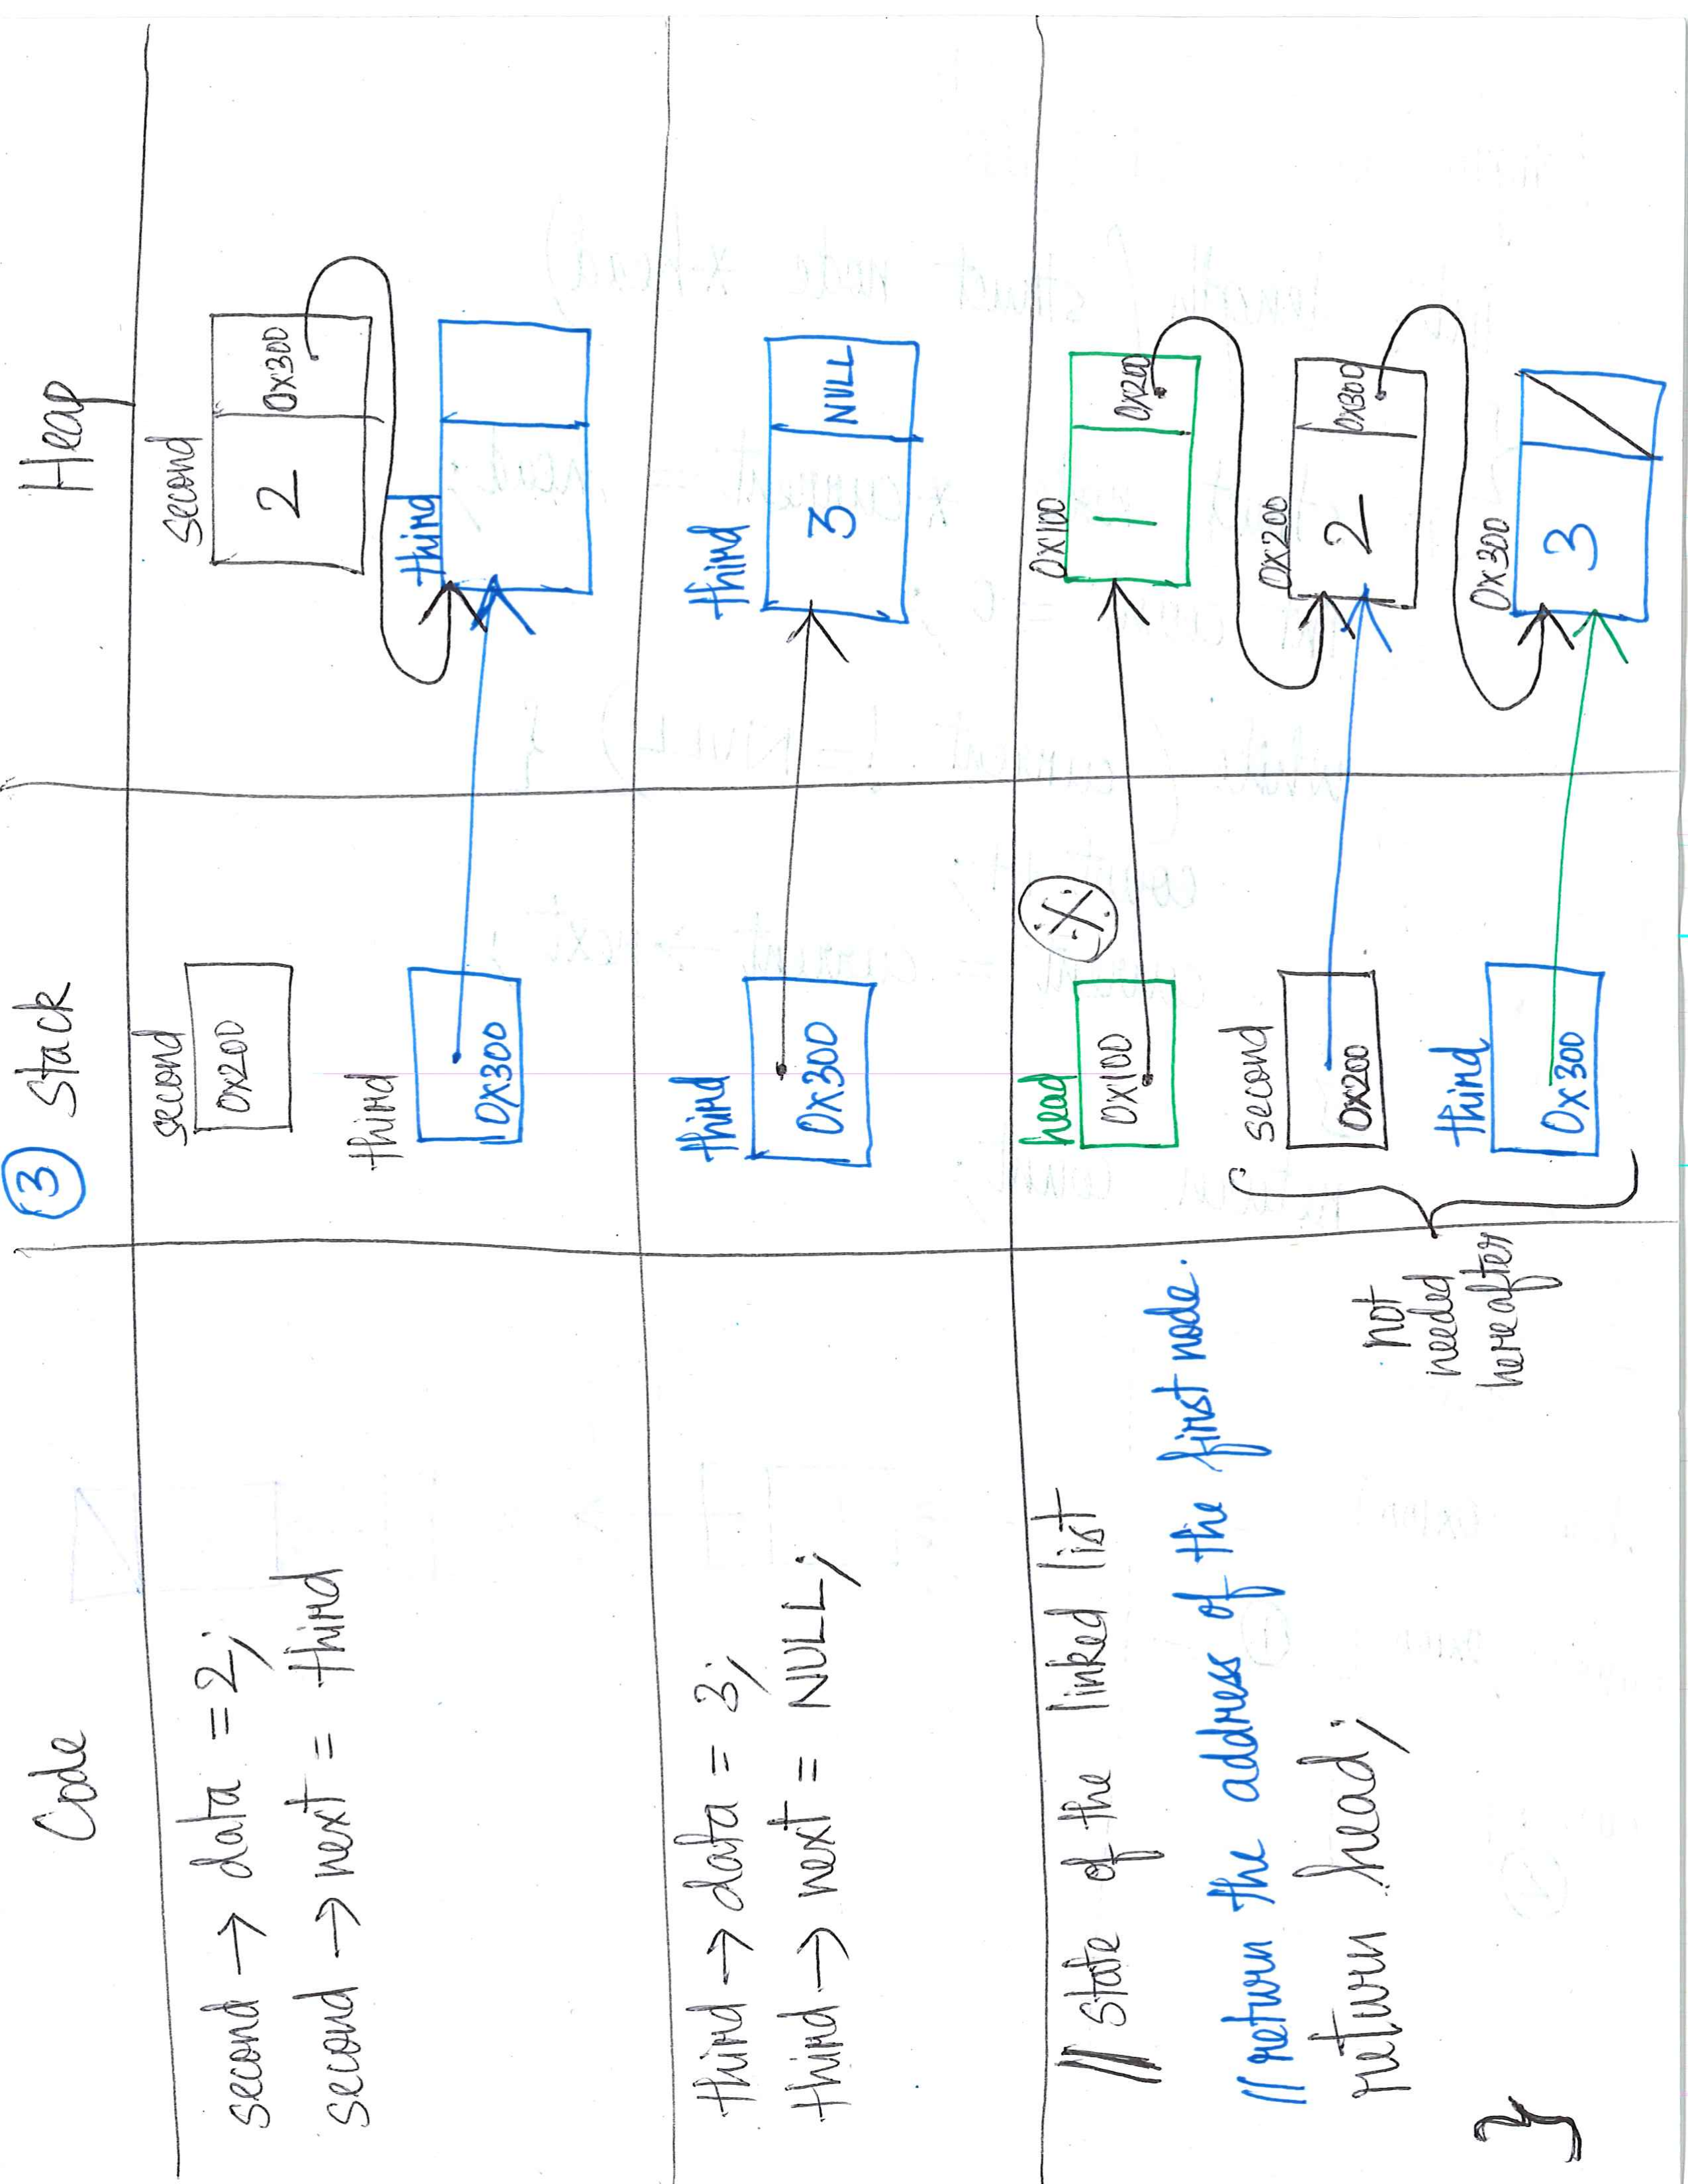 Code
③ Stack
Heap
second → data = 2;
second → next = third
second
0x200
third
0x300
second
2
0x300
third
third → data = 3;
third → next = NULL;
third
0x300
third
3
NULL
// State of the linked list
// return the address of the first node.
return head;
}
not
needed
hereafter
head
0x100
second
0x200
third
0x300
0x100
1
0x200
0x200
2
0x300
0x300
3